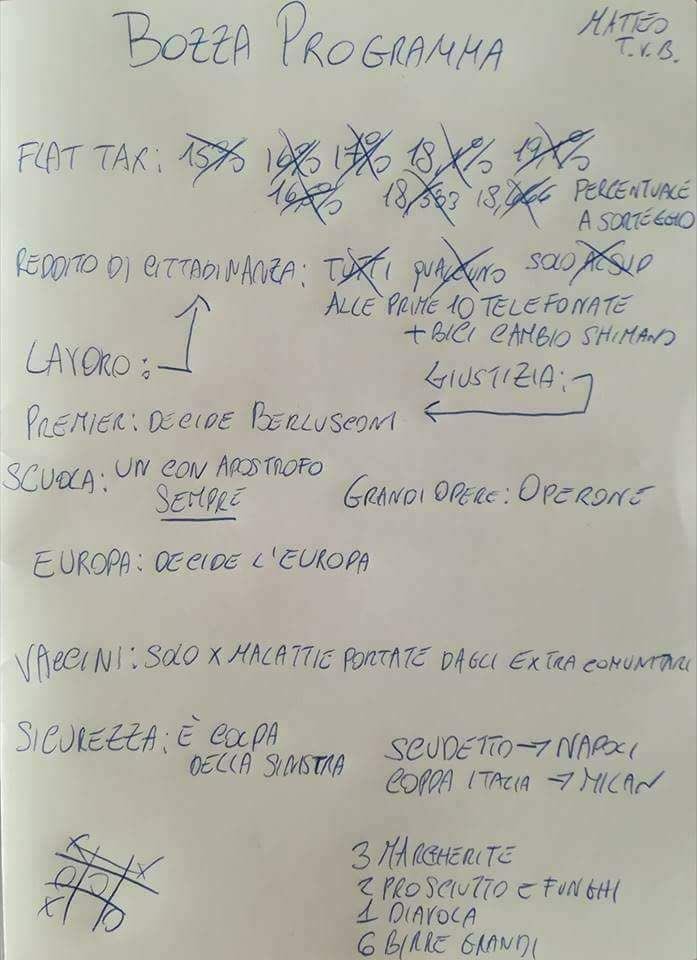 BOZZA PROGRAMMA
MATTEO
T.V.B.
FLAT TAX: 15% 16% 17% 18,1% 19,1%
16,5% 18,333 18,666 PERCENTUALE
A SORTEGGIO
REDDITO DI CITTADINANZA: TUTTI QUALCUNO SOLO
ALLE PRIME 10 TELEFONATE
+ BICI CAMBIO SHIMANO
LAVORO:
GIUSTIZIA:
PREMIER: DECIDE BERLUSCONI
SCUOLA: UN CON APOSTROFO
SEMPRE
GRANDI OPERE: OPERONE
EUROPA: DECIDE L'EUROPA
VACCINI: SOLO X MALATTIE PORTATE DAGLI EXTRA COMUNITARI
SICUREZZA: È COLPA
DELLA SINISTRA
SCUDETTO → NAPOLI
COPPA ITALIA → MILAN
3 MARGHERITE
2 PROSCIUTTO E FUNGHI
1 DIAVOLA
6 BIRRE GRANDI